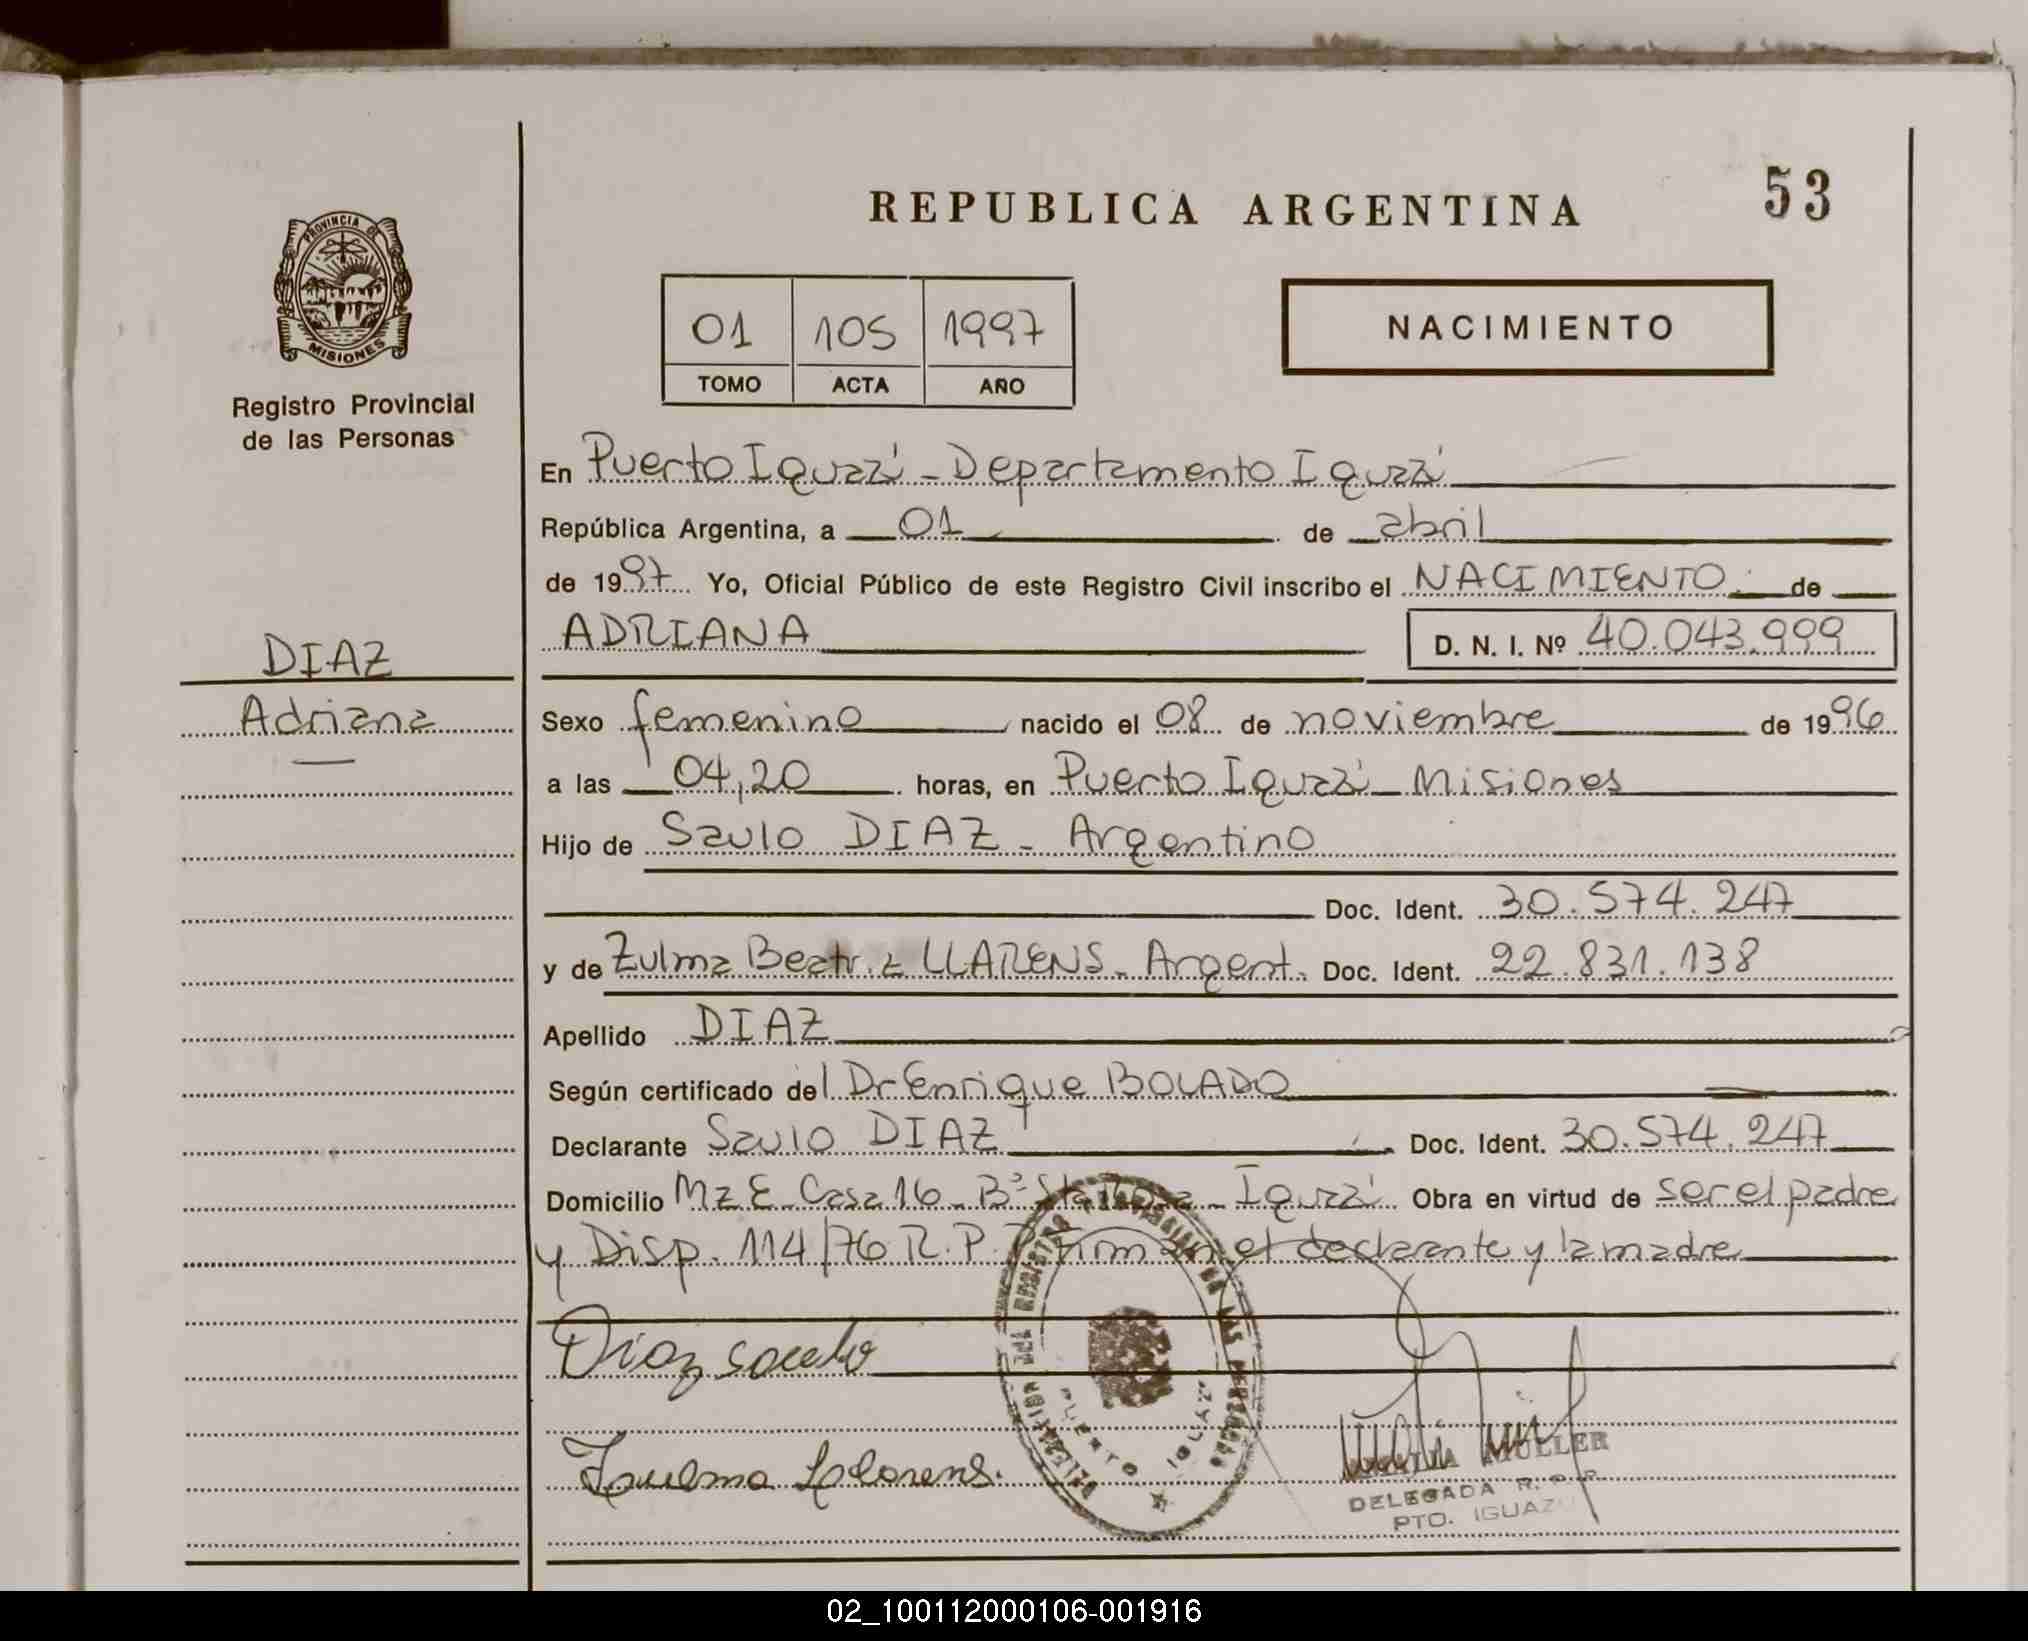 REPUBLICA ARGENTINA
53
PROVINCIA DE
MISIONES
Registro Provincial
de las Personas
01 105 1997
TOMO ACTA AÑO
NACIMIENTO
En Puerto Iguazú - Departamento Iguazú
República Argentina, a 01 de abril
de 1997 Yo, Oficial Público de este Registro Civil inscribo el NACIMIENTO de
ADRIANA D. N. I. Nº 40.043.999
DIAZ
Adriana
Sexo femenino nacido el 08 de noviembre de 1996
a las 04,20 horas, en Puerto Iguazú Misiones
Hijo de Saulo DIAZ - Argentino
Doc. Ident. 30.574.247
y de Zulma Beatriz LLARENS - Argent. Doc. Ident. 22.831.138
Apellido DIAZ
Según certificado del Dr Enrique BOLADO
Declarante Saulo DIAZ Doc. Ident. 30.574.247
Domicilio Mz E Casa 16 - Bº Sta Rosa - Iguazú Obra en virtud de ser el padre
y Disp. 114/76 R. P. P. Firman el declarante y la madre
Diaz Saulo
DELEGACION DEL REGISTRO DE LAS PERSONAS
PUERTO IGUAZU
MULLER
DELEGADA R. P. P.
PTO. IGUAZU
02_100112000106-001916